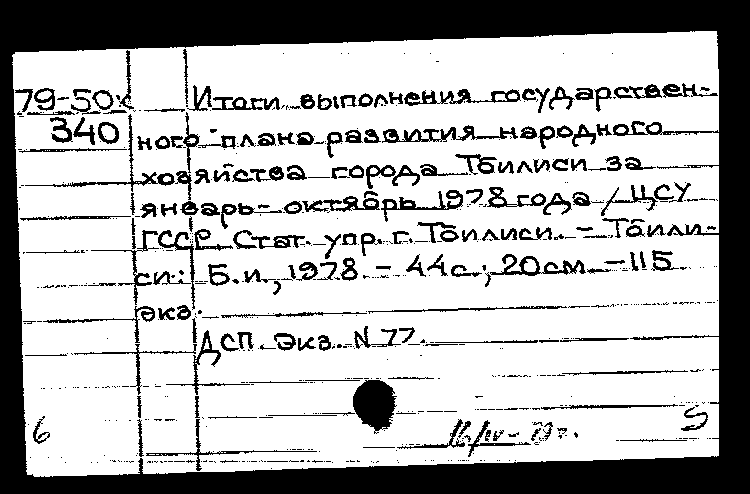 79-50к Итоги выполнения государствен-
340 ного плана развития народного
хозяйства города Тбилиси за
январь-октябрь 1978 года / ЦСУ
ГССР. Стат. упр. г. Тбилиси. - Тбили-
си.: Б.и., 1978. - 44с.; 20см. - 115
экз.
ДСП. Экз. N 77.
6 16/IV - 79 г. S